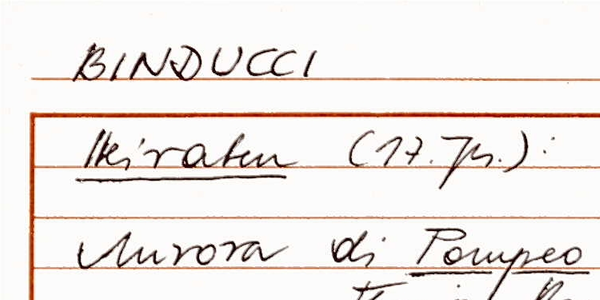 BINDUCCI
Heiraten (17. Jh.):
Aurora di Pompeo